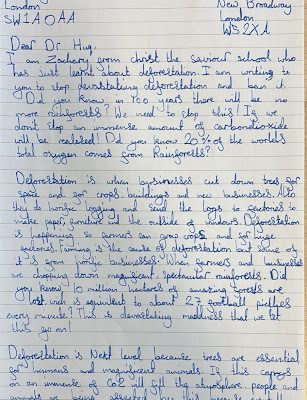 London
SW1A 0AA
New Broadway
London
W5 2XA
Dear Dr. Huq,
I am Zachary from christ the saviour school who
has just learnt about deforestation. I am writing to
you to stop devastating deforestation and ban it
Did you know in 100 years there will be no
more rainforests? We need to stop this! If we
don't stop an immense amount of carbondioxide
will be realesed! Did you know 20% of the world's
total oxygen comes from Rainforests?
Deforestation is when businesses cut down trees for
space and for crops, buildings and new businesses. Also
they do horrific logging and send the logs to factories to
make paper, furniture and the outside of windows. Deforestation
is happening so farmers can grow crops and for huge
factories. Farming is the cause of deforestation but some of
it is from horrific businesses. When farmers and businesses
are chopping down magnificent, spectacular rainforests. Did
you know 10 million hectares of amazing forests are
lost wich is equivalent to about 27 football pitches
every minute? This is devastating maddness that we let
this go on!
Deforestation is Next level because trees are essential
for humans and magnificent animals. If this carrys
on an immense of Co2 will fill the atmosphere people and